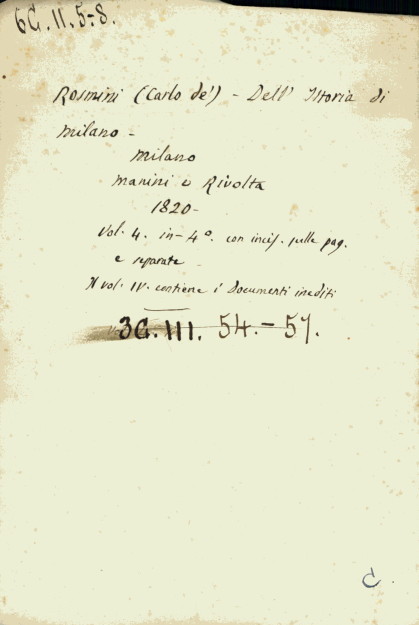 6G.II.5-8.
Rosmini (Carlo de') - Dell' Istoria di
Milano -
Milano
Manini e Rivolta
1820-
Vol. 4. in-4º. con incis. nelle pag.
e separate
Il vol. IV. contiene i Documenti inediti
3G. III. 54.-57.
C.